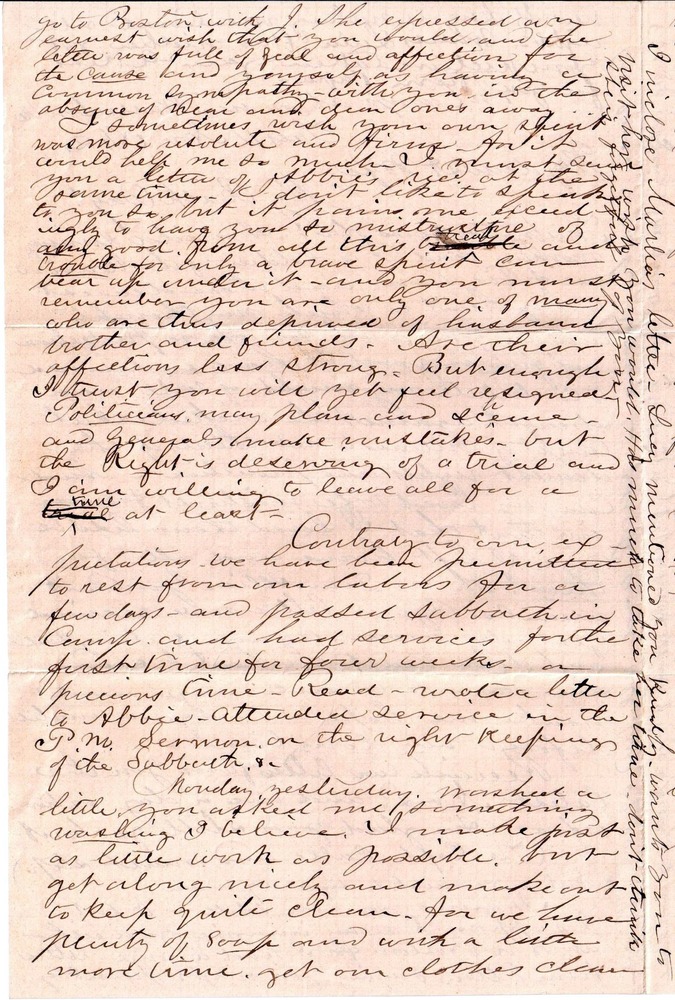 go to Boston with J. She expressed an
earnest wish that you would and the
letter was full of zeal and affection for
the cause and yourself as having a
common sympathy - with you in the
absence of near and dear ones away
I sometimes wish your own spirit
was more resolute and firm - for it
would help me so much. I must send
you a letter of Abbie's rec'd at the
same time - I don't like to speak
to you so, but it pains me exceed
ingly to have you so mistrustful of
any good from all this and
trouble - for only a brave spirit can
bear up under it - and you must
remember you are only one of many
who are thus deprived of husband
brother and friends - Are their
affections less strong - But enough
I trust you will yet feel resigned
Politicians may plan and sceme -
and Generals make mistakes - but
the Right is deserving of a trial and
I am willing to leave all for a
time at least -
Contrary to our ex -
pectations we have been permitted
to rest from our labors for a
few days - and passed Sabbath in
Camp and had services for the
first time for four weeks - a
precious time - Read - wrote a letter
to Abbie - attended service in the
P.M. Sermon on the right keeping
of the Sabbath &c
Monday, yesterday, washed a
little, you asked me something
washing I believe. I make just
as little work as possible, but
get along nicely and make out
to keep quite clean - for we have
plenty of soap and with a little
more time, get our clothes clean
I inclose Maria's letter - Lucy mentioned you kindly - wants you to
visit her wish you would. Its much to take her time - don't think
she is forgetful of you